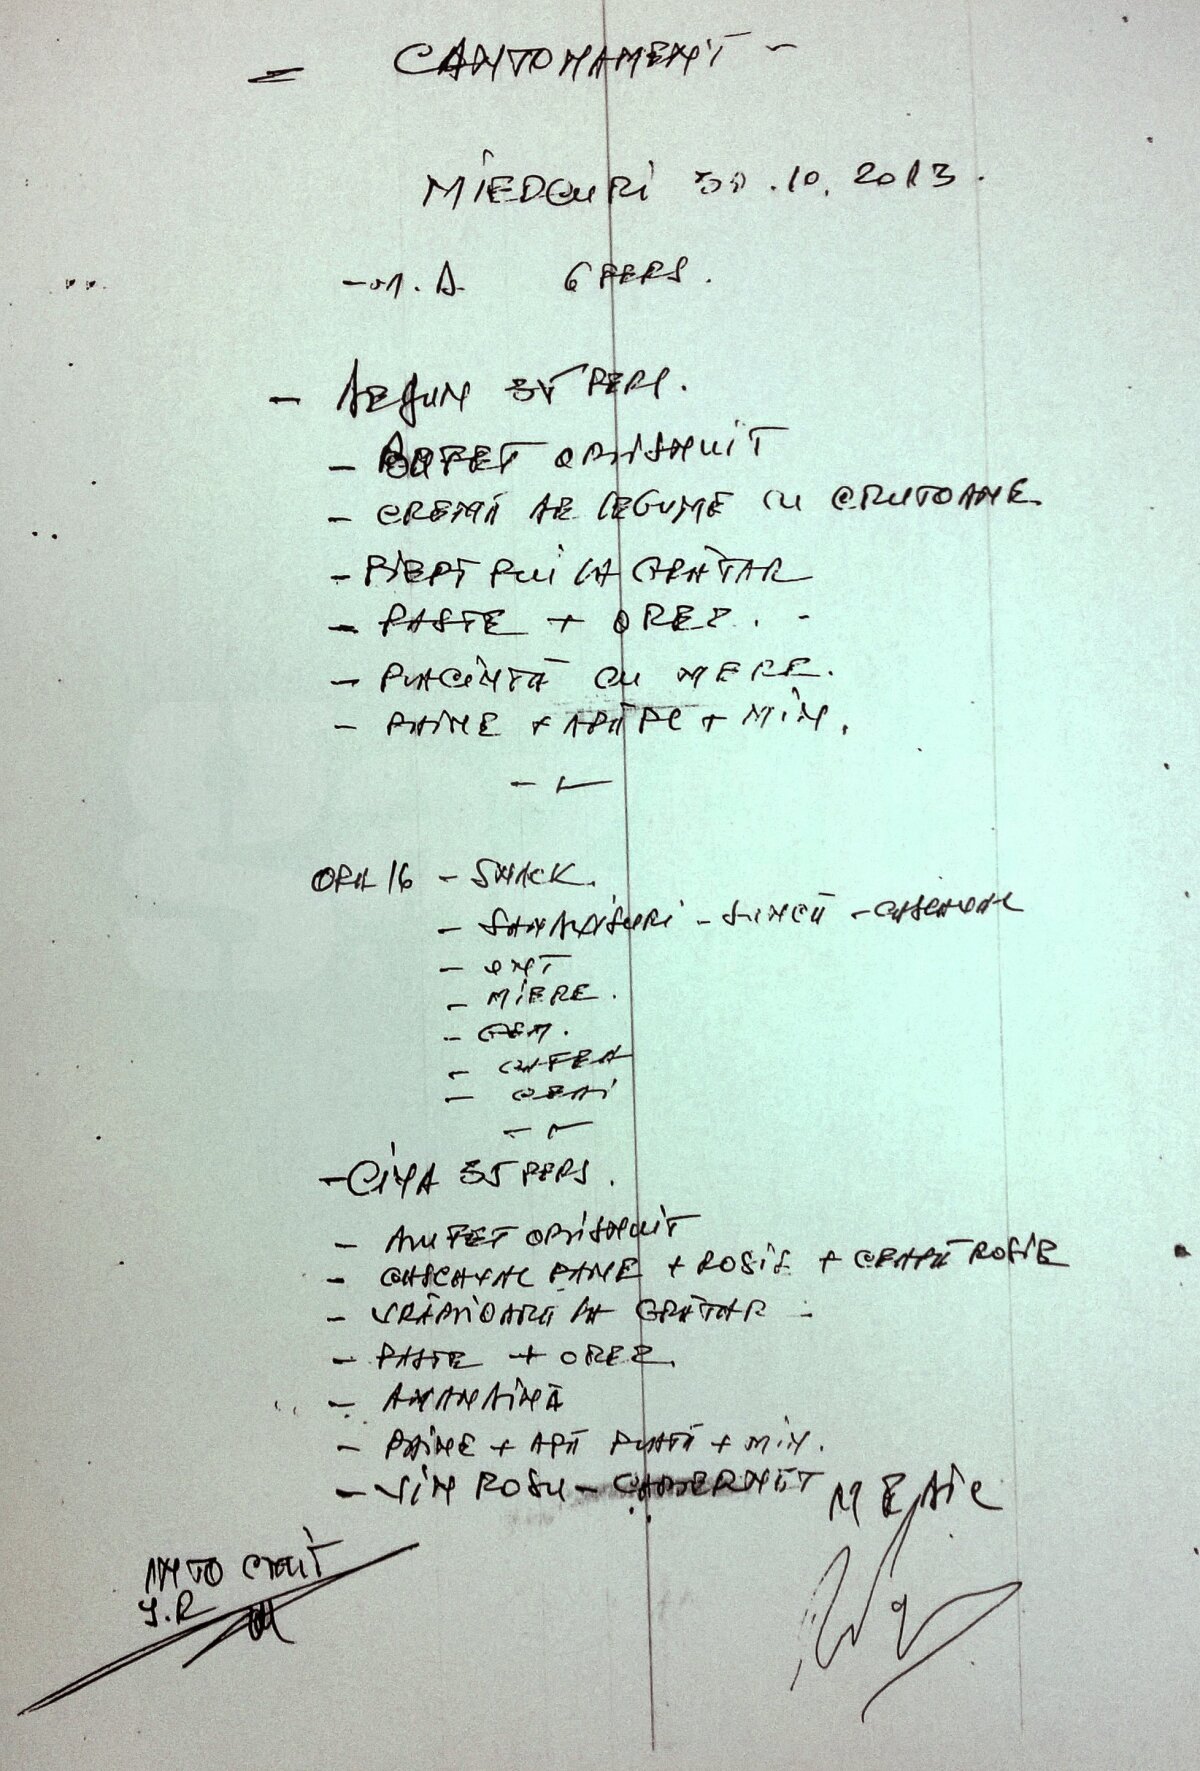 - CANTONAMENT -
MIERCURI 30.10.2013.
6 PERS.
- DEJUN 35 PERS.
- BUFET OBISNUIT
- CREMĂ DE LEGUME CU CRUTOANE
- PIEPT PUI LA GRĂTAR
- PASTE + OREZ. -
- PLACINTĂ CU MERE.
- PAINE + APĂ PL + MIN.
ORA 16 - SNACK.
- SANDVISURI - SUNCĂ - CASCAVAL
- UNT
- MIERE.
- GEM.
- CAFEA
- CEAI
- CINA 35 PERS.
- BUFET OBISNUIT
- CASCAVAL PANE + ROSII + CEAPĂ ROSIE
- VRĂBIOARĂ LA GRĂTAR -
- PASTE + OREZ.
- BANANĂ
- PAINE + APĂ PLATĂ + MIN.
- VIN ROSU - CABERNET
MEDIC